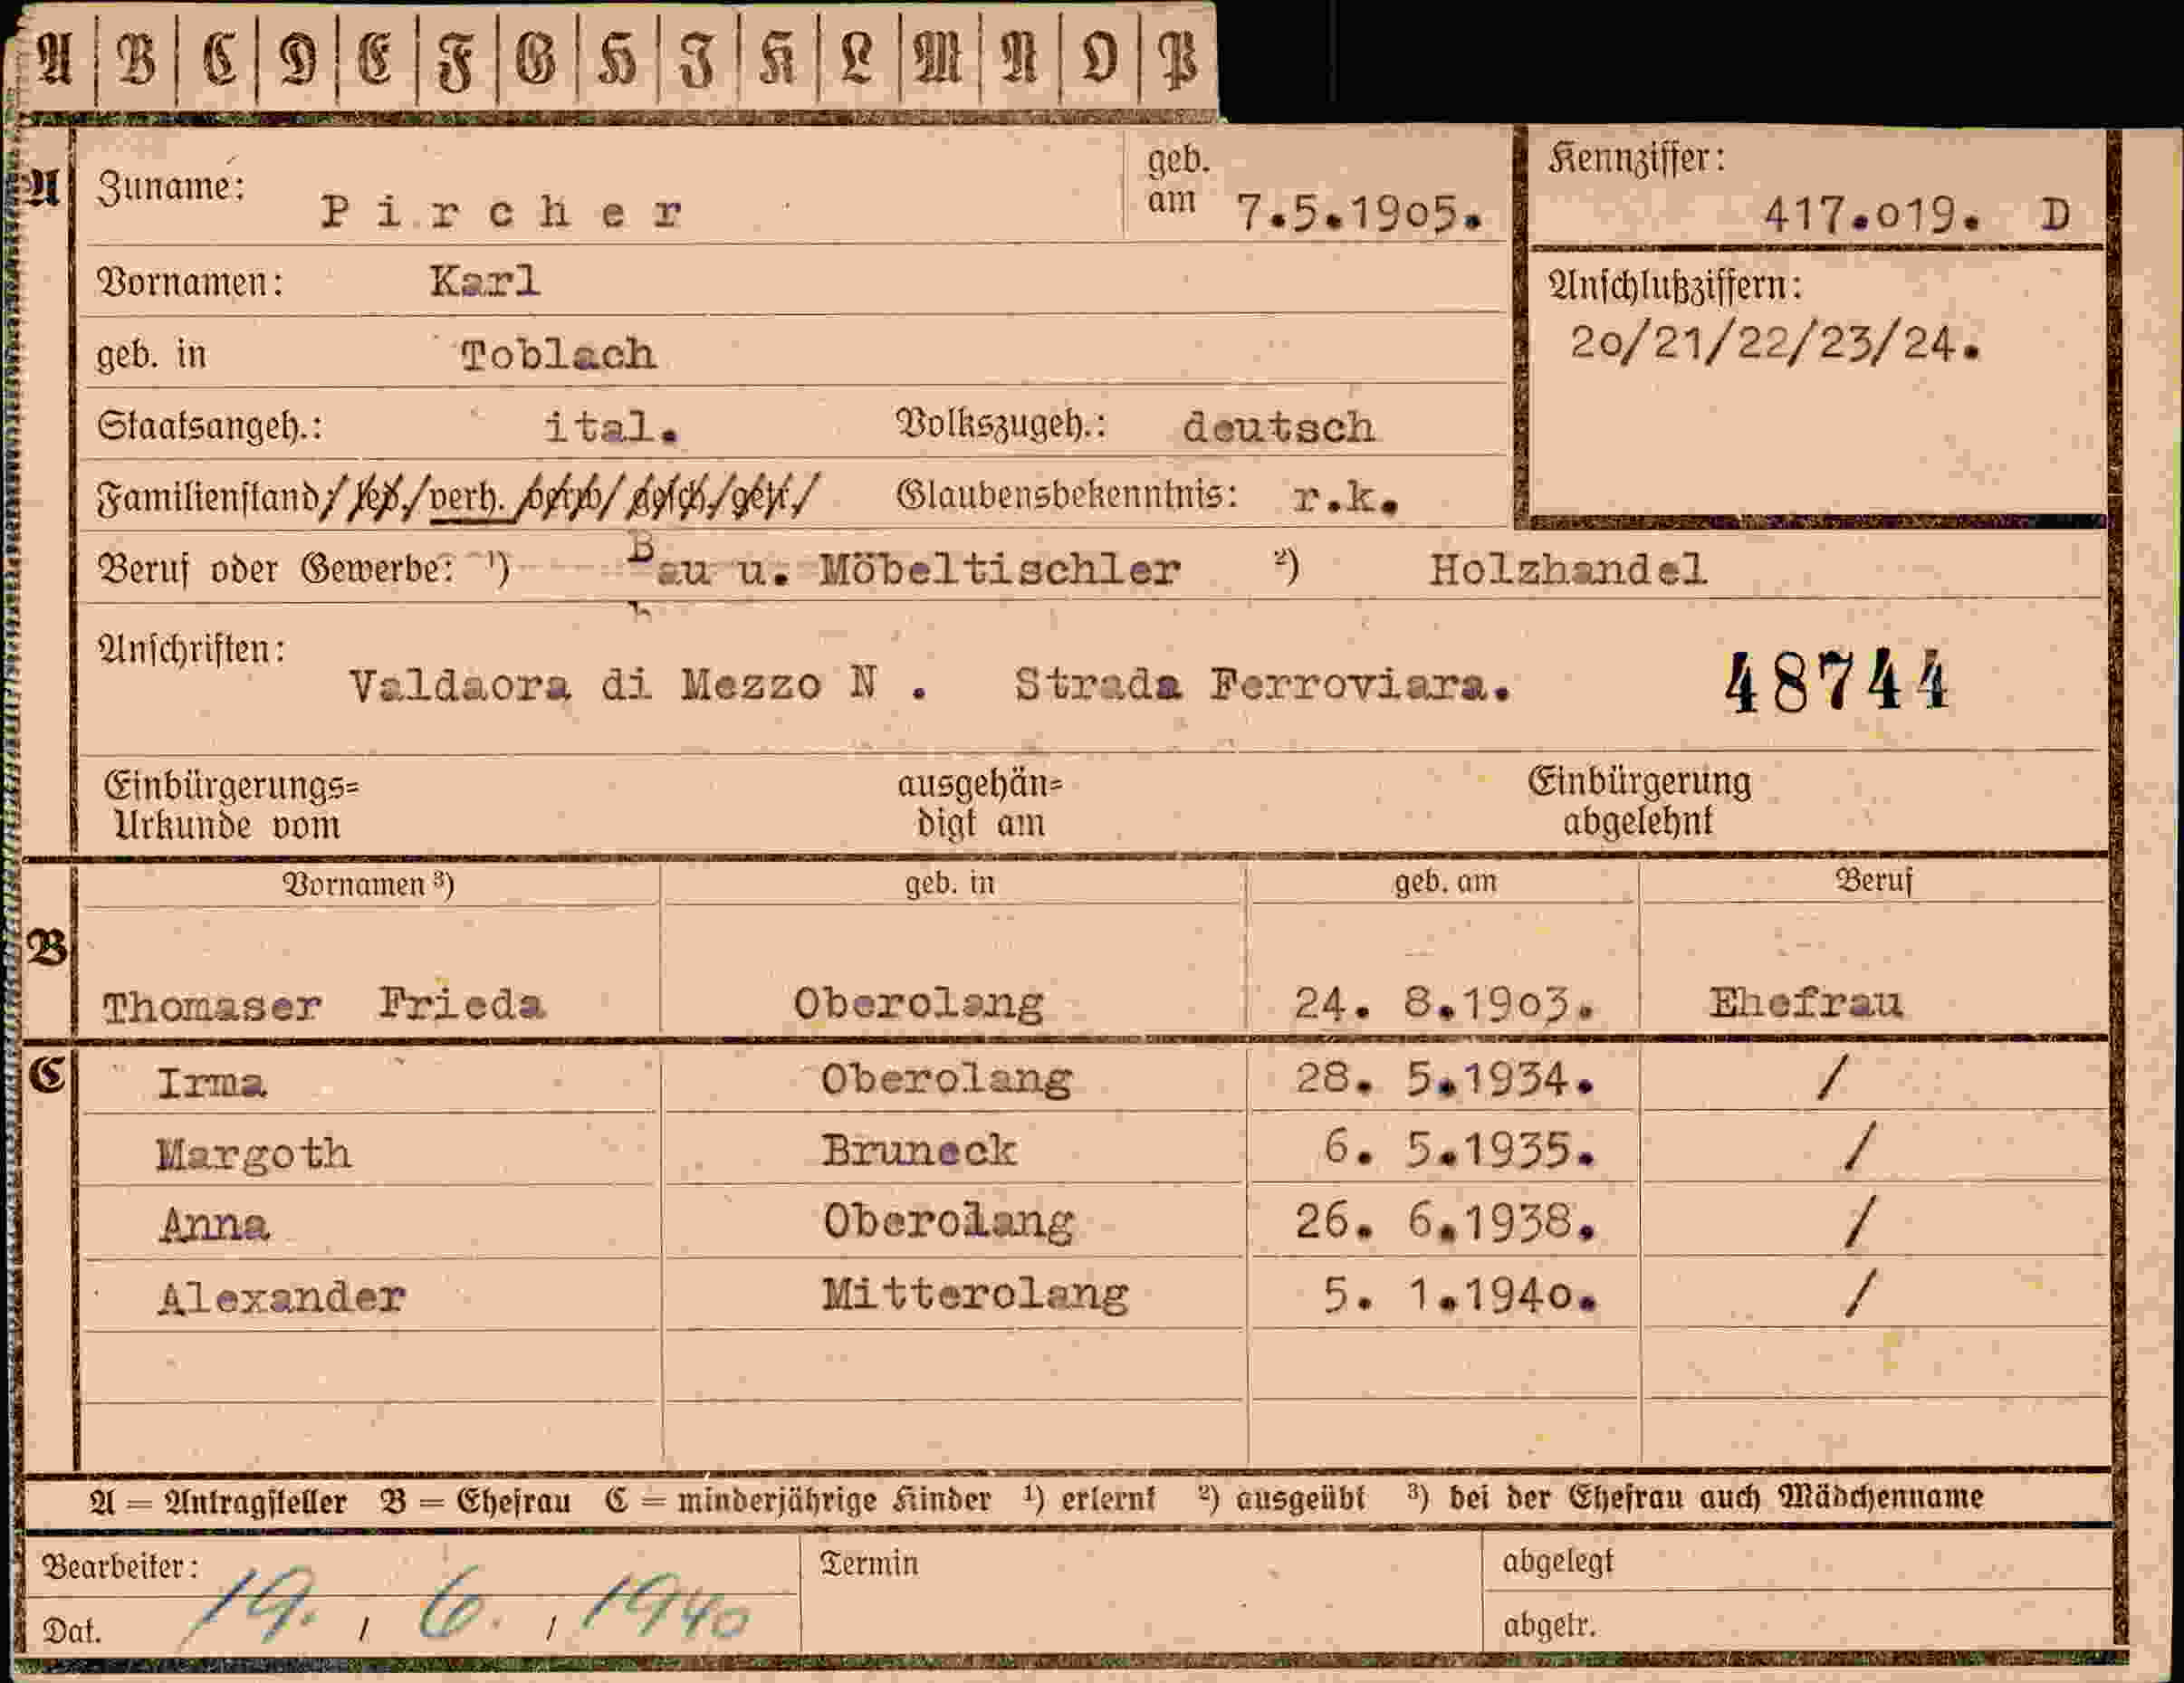 A B C D E F G H I K L M N O P
A Zuname: Pircher geb. am 7.5.1905. Kennziffer: 417.019. D
Vornamen: Karl Anschlußziffern:
geb. in Toblach 20/21/22/23/24.
Staatsangeh.: ital. Volkszugeh.: deutsch
Familienstand:/ led./verh. /verw/ gesch./getr/ Glaubensbekenntnis: r.k.
Beruf oder Gewerbe: ¹) Bau u. Möbeltischler ²) Holzhandel
Anschriften:
Valdaora di Mezzo N . Strada Ferroviara. 48744
Einbürgerungs= ausgehän= Einbürgerung
Urkunde vom digt am abgelehnt
Vornamen ³) geb. in geb. am Beruf
B
Thomaser Frieda Oberolang 24. 8.1903. Ehefrau
C Irma Oberolang 28. 5.1934. /
Margoth Bruneck 6. 5.1935. /
Anna Oberolang 26. 6.1938. /
Alexander Mitterolang 5. 1.1940. /
A = Antragsteller B = Ehefrau C = minderjährige Kinder ¹) erlernt ²) ausgeübt ³) bei der Ehefrau auch Mädchenname
Bearbeiter: Termin abgelegt
Dat. 19. / 6. / 1940 abgetr.